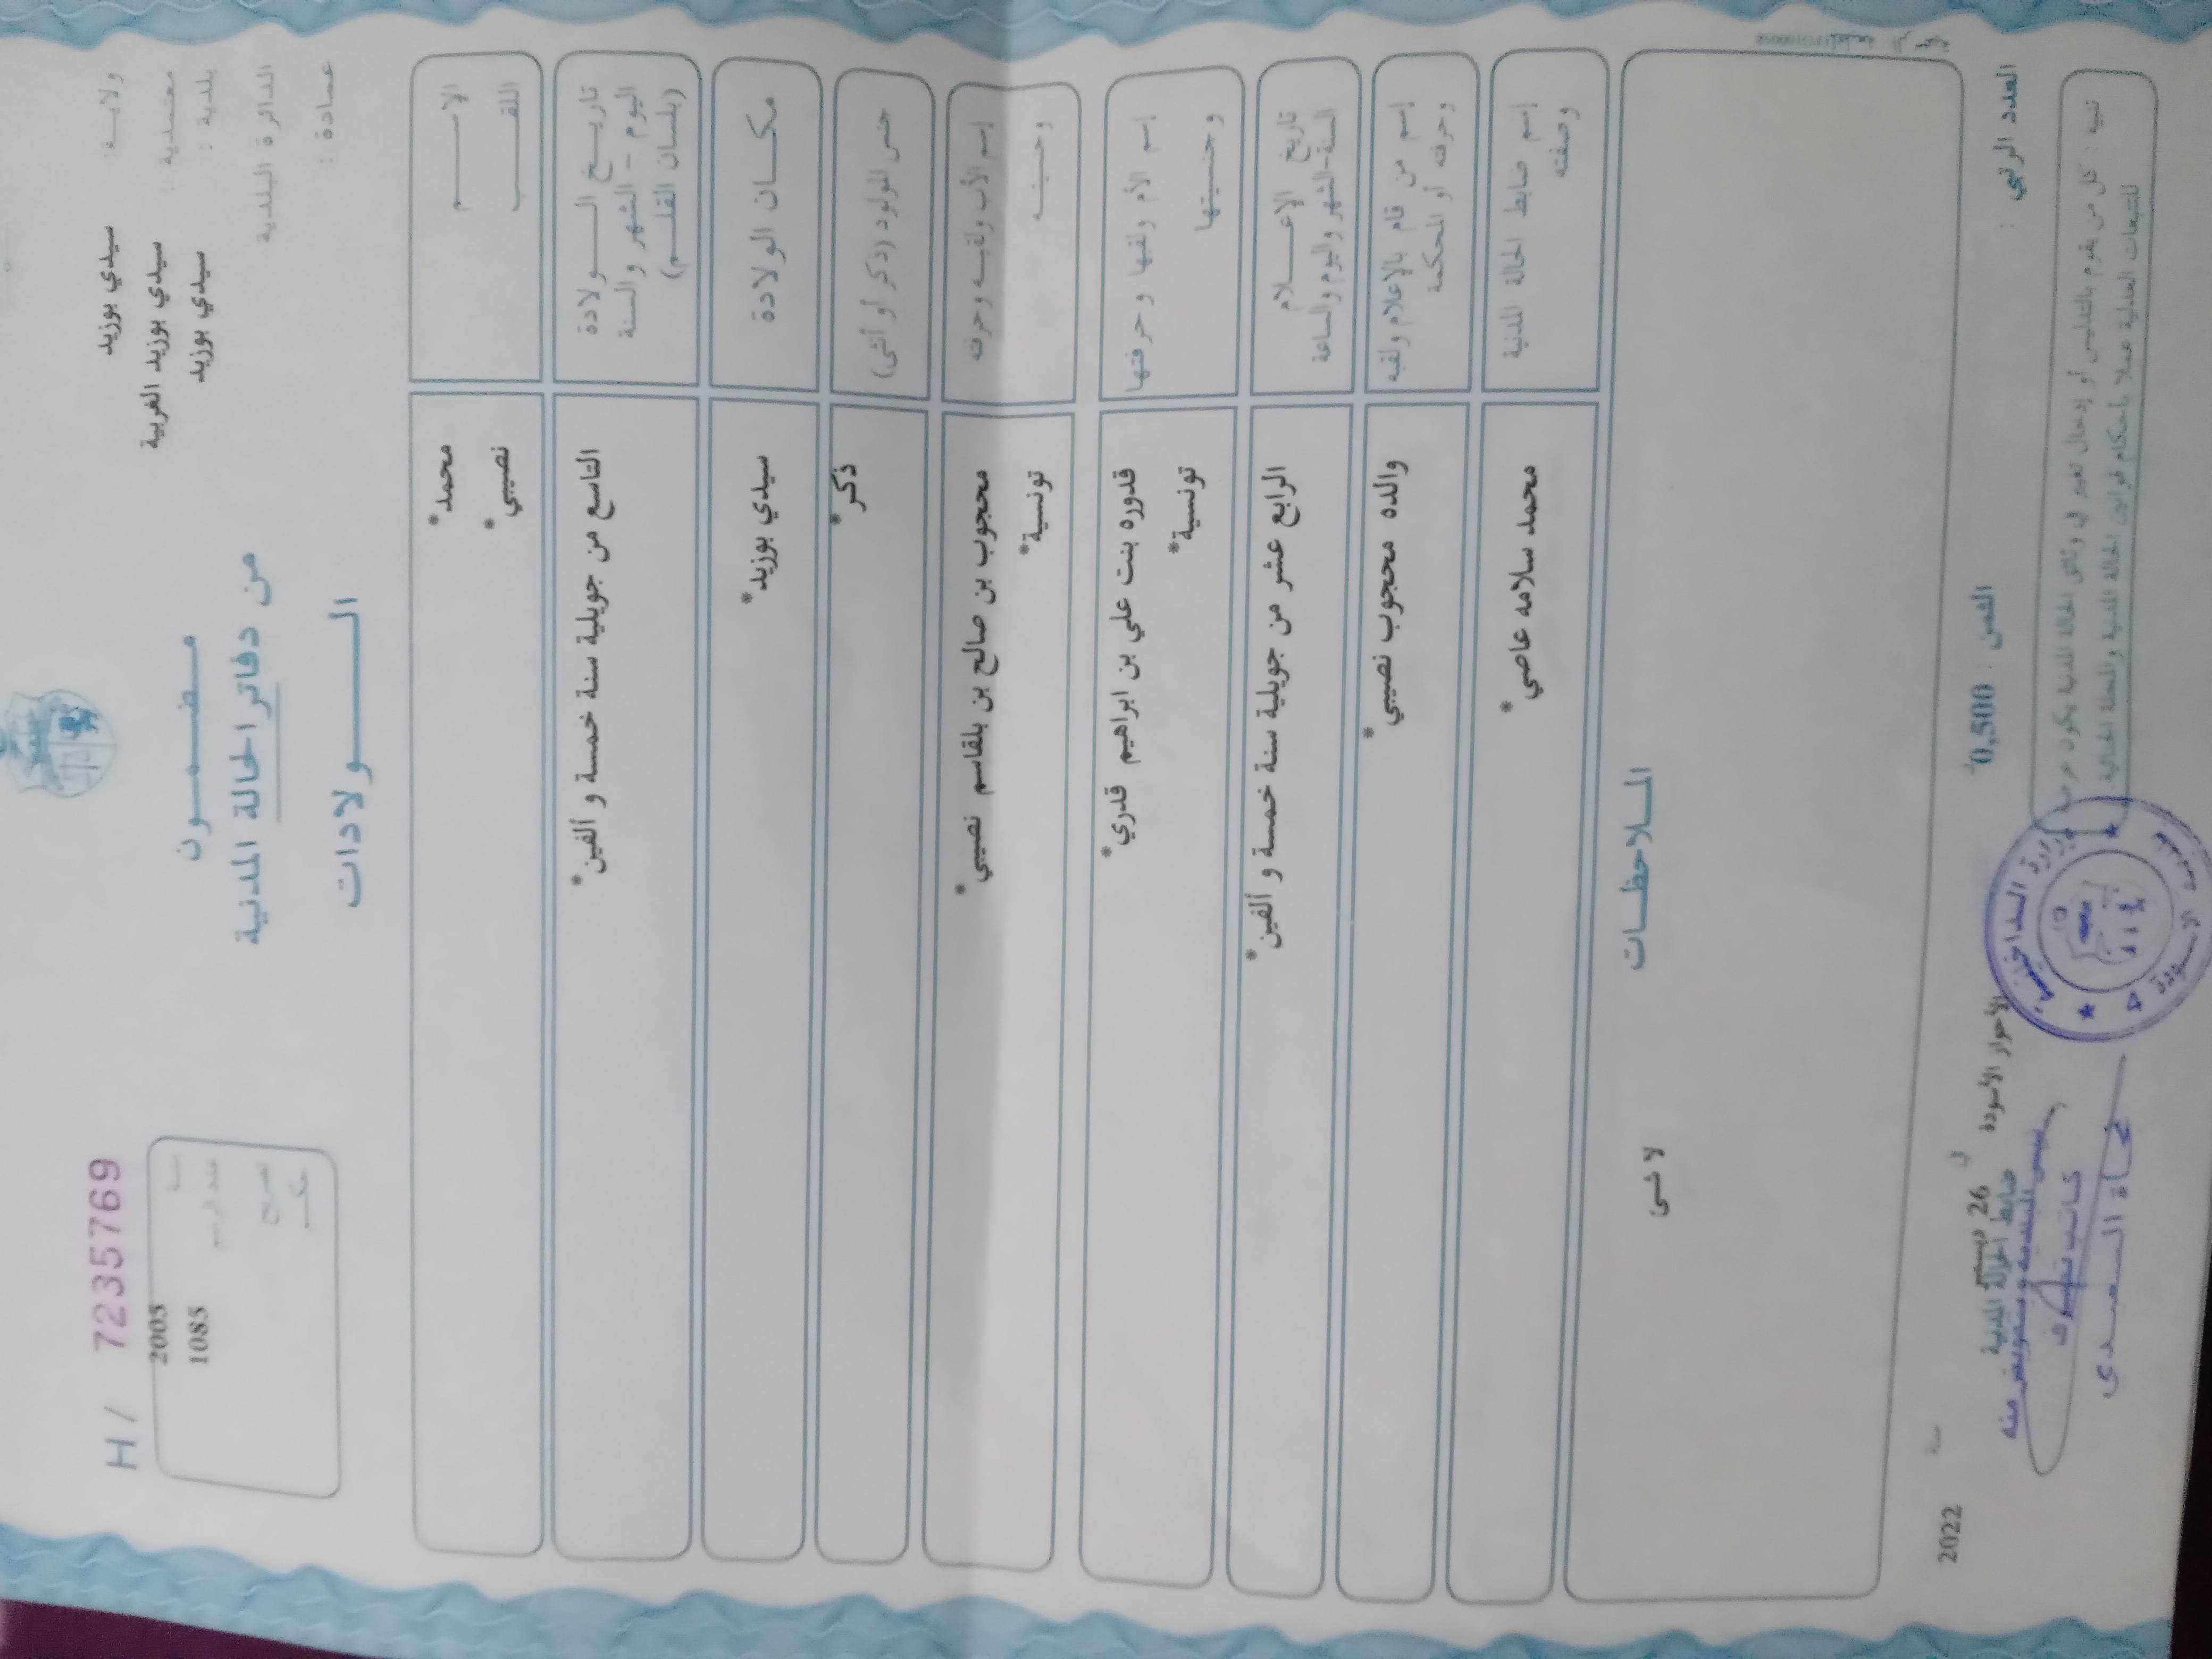 ولايـة: سيدي بوزيد
معتمدية : سيدي بوزيد الغربية
بلدية : سيدي بوزيد
الدائرة البلدية
عمادة :
مـضـمـون
من دفاتر الحالة المدنية
الـولادات
H / 7235769
2005
عدد الرسم 1085
الإسـم محمد*
اللقـب نصيبي*
تاريـخ الـولادة
اليوم - الشهر والسنة
(بلسان القلـم)
التاسع من جويلية سنة خمسة و ألفين*
مكـان الولادة سيدي بوزيد*
جنس المولود (ذكر أو أنثى) ذكر*
إسم الأب ولقبه وحرفته محجوب بن صالح بن بلقاسم نصيبي*
وجنسيته تونسية*
إسم الأم ولقبها وحرفتها قدوره بنت علي بن ابراهيم قدري*
وجنسيتها تونسية*
تاريخ الإعـلام
السنة-الشهر واليوم والساعة
الرابع عشر من جويلية سنة خمسة و ألفين*
إسم من قام بالإعلام ولقبه
وحرفته أو المحكمة
والده محجوب نصيبي*
إسم ضابط الحالة المدنية
وصفته
محمد سلامه عاصي*
المـلاحظـات
لا شى
2022
في 26
العدد الرتبي :
الثمن : 0,500
الأحواز الأسودة
ضابط الحالة المدنية
تنبيه : كل من يقوم بالتدليس أو إدخال تغيير في وثائق الحالة المدنية يكون عرضة
للتتبعات العدلية عملا بأحكام قوانين الحالة المدنية والمجلة الجنائية
وزارة الداخلية
كاتب تصرف
نجاة السعيدي